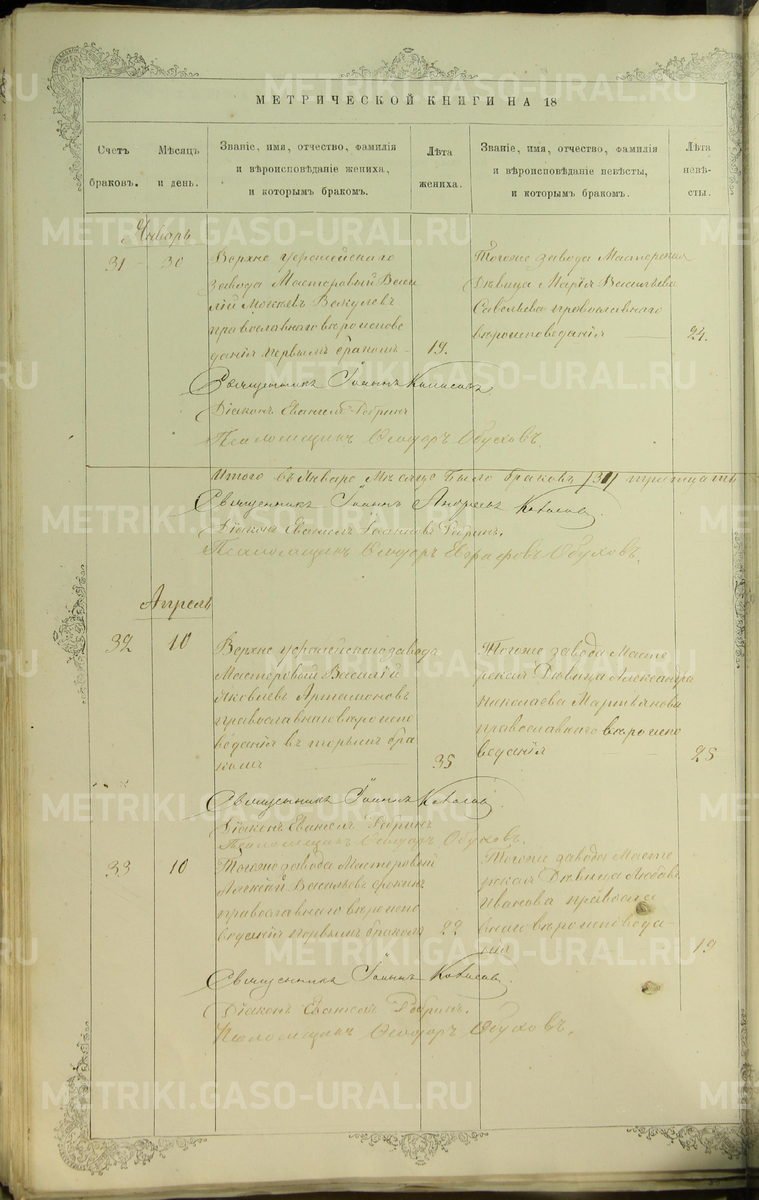 МЕТРИЧЕСКОЙ КНИГИ НА 18
Счетъ браковъ.
Мѣсяцъ и день.
Званіе, имя, отчество, фамилія
и вѣроисповѣданіе жениха,
и которымъ бракомъ.
Лѣта жениха.
Званіе, имя, отчество, фамилія
и вѣроисповѣданіе невѣсты,
и которымъ бракомъ.
Лѣта невѣ-
сты.
Январь
31
30
Верхне
завода Мастеровый Васи
лій
православнаго вѣроиспове
данія первымъ бракомъ
19.
Тогоже завода Мастерская
Дѣвица Марія Васильева
Савельева православнаго
вѣроисповеданія
24.
Священникъ Іоаннъ
Діаконъ
Псаломщикъ Ѳеодоръ Обуховъ.
Итого въ Январе Месяце было браковъ /31/
Священникъ Іоаннъ Андреевъ
Діаконъ
Псаломщикъ Ѳеодоръ Обуховъ.
Апрель
32
10
Верхне завода
Мастеровый Василій
Яковлевъ Артамоновъ
православнаго вѣроиспо
веданія вторымъ бра
комъ
35
Тогоже завода Масте
рская Дѣвица Александра
Николаева Мартьянова
православнаго вѣроиспо
веданія
25
Священникъ Іоаннъ
Діаконъ
Псаломщикъ Ѳеодоръ Обуховъ.
33
10
Тогоже завода Мастеровый
Алексѣй Васильевъ
православнаго вѣроиспо
веданія первымъ бракомъ
22
Тогоже завода Масте
рская Дѣвица Любовь
Иванова правосла
внаго вѣроисповеда-
нія
19
Священникъ Іоаннъ
Діаконъ
Псаломщикъ Ѳеодоръ Обуховъ.
METRIKI.GASO-URAL.RU